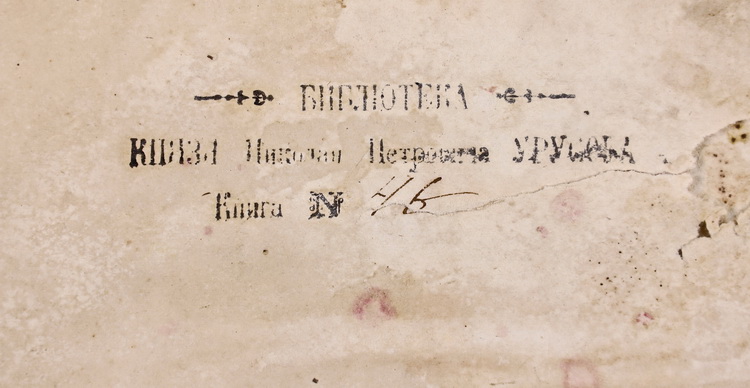 БИБЛІОТЕКА
КНЯЗЯ Николая Петровича УРУСОВА.
Книга N 46